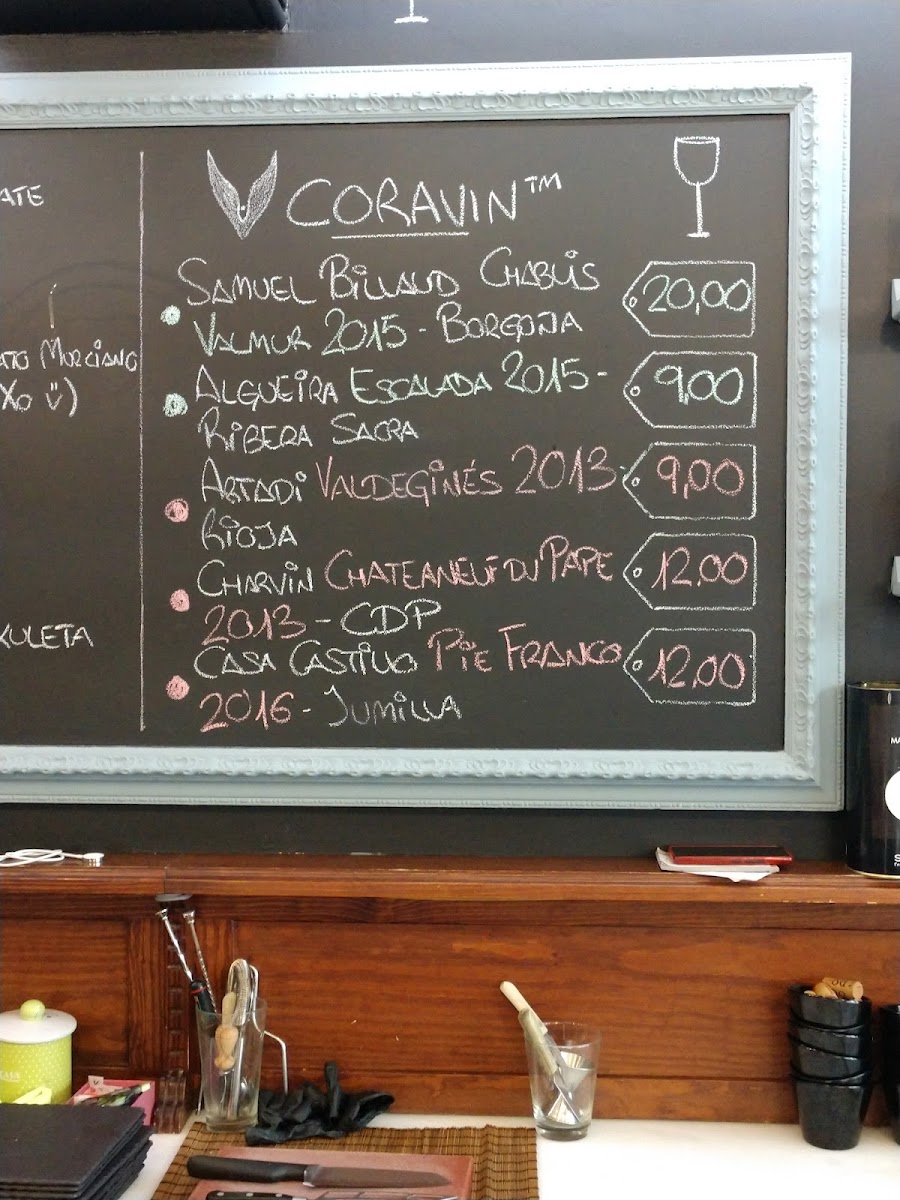 ATE
ATO MURCIANO
XO
KULETA
CORAVIN™
SAMUEL BILLAUD CHABLIS
VALMUR 2015 - BORGOÑA
20,00
ALGUEIRA ESCALADA 2015 -
RIBERA SACRA
9,00
ARTADI VALDEGINÉS 2013 -
RIOJA
9,00
CHARVIN CHATEANEUF DU PAPE
2013 - CDP
12.00
CASA CASTILLO PIE FRANCO
2016 - JUMILLA
12,00